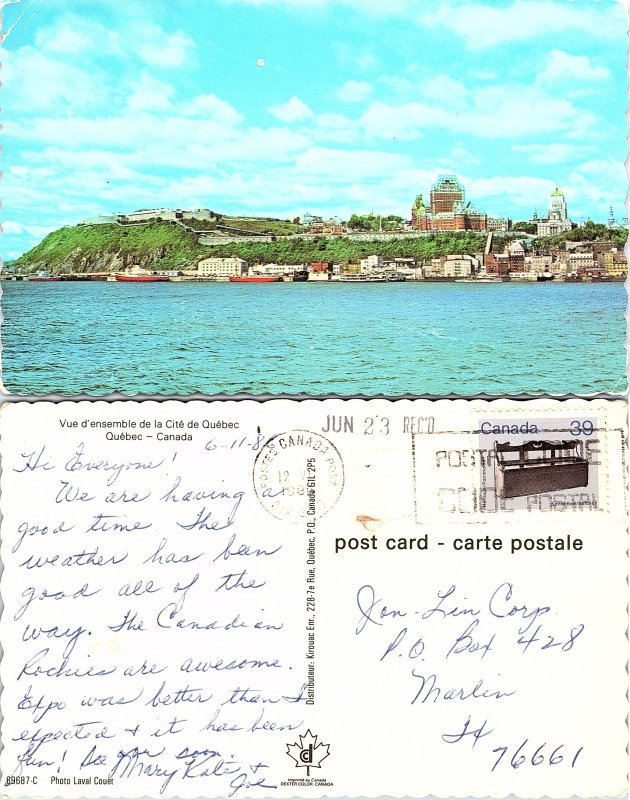 Vue d'ensemble de la Cité de Québec
Québec – Canada
6-11-8
Hi Everyone!
We are having a
good time. The
weather has been
good all of the
way. The Canadian
Rockies are awesome.
Expo was better than I
expected & it has been
fun! See you soon.
Mary Kate &
Joe
69687-C Photo Laval Couët
Distributeur: Kirouac Enr., 228-7e Rue, Québec, P.Q., Canada G1L 2P5
imprimé au Canada
DEXTER COLOR, CANADA
JUN 23 REC'D
CANADA POST
12
Canada 39
POSTAL
CODE POSTAL
post card - carte postale
Jon-Lin Corp.
P.O. Box 428
Marlin
TX
76661